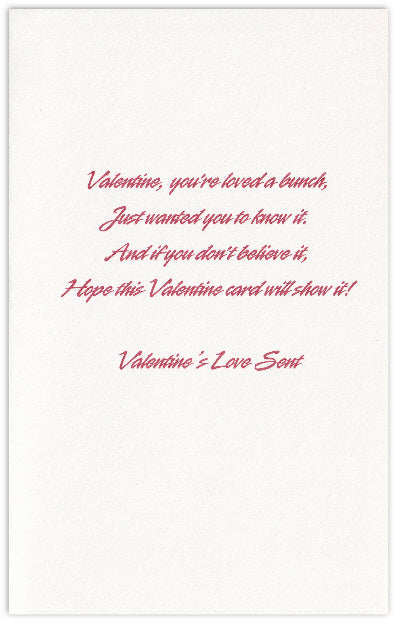 Valentine, you're loved a bunch,
Just wanted you to know it.
And if you don't believe it,
Hope this Valentine card will show it!
Valentine's Love Sent